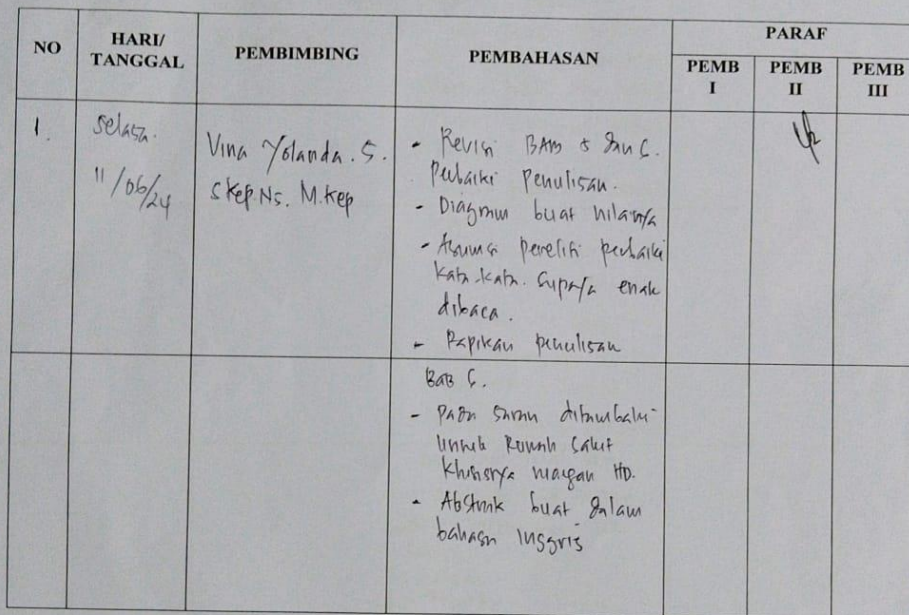 NO
HARI/
TANGGAL
PEMBIMBING
PEMBAHASAN
PARAF
PEMB
I
PEMB
II
PEMB
III
1.
Selasa.
11/06/24
Vina Yolanda. S.
SKep.Ns. M.Kep
- Revisi BAB 5 dan 6.
Perbaiki Penulisan.
- Diagram buat nilainya
- Asumsi peneliti perbaiki
kata-kata. Supaya enak
dibaca.
- Rapikan penulisan
BAB 6.
- Pada saran ditambah
untuk Rumah Sakit
khususnya ruangan HD.
- Abstrak buat dalam
bahasa Inggris